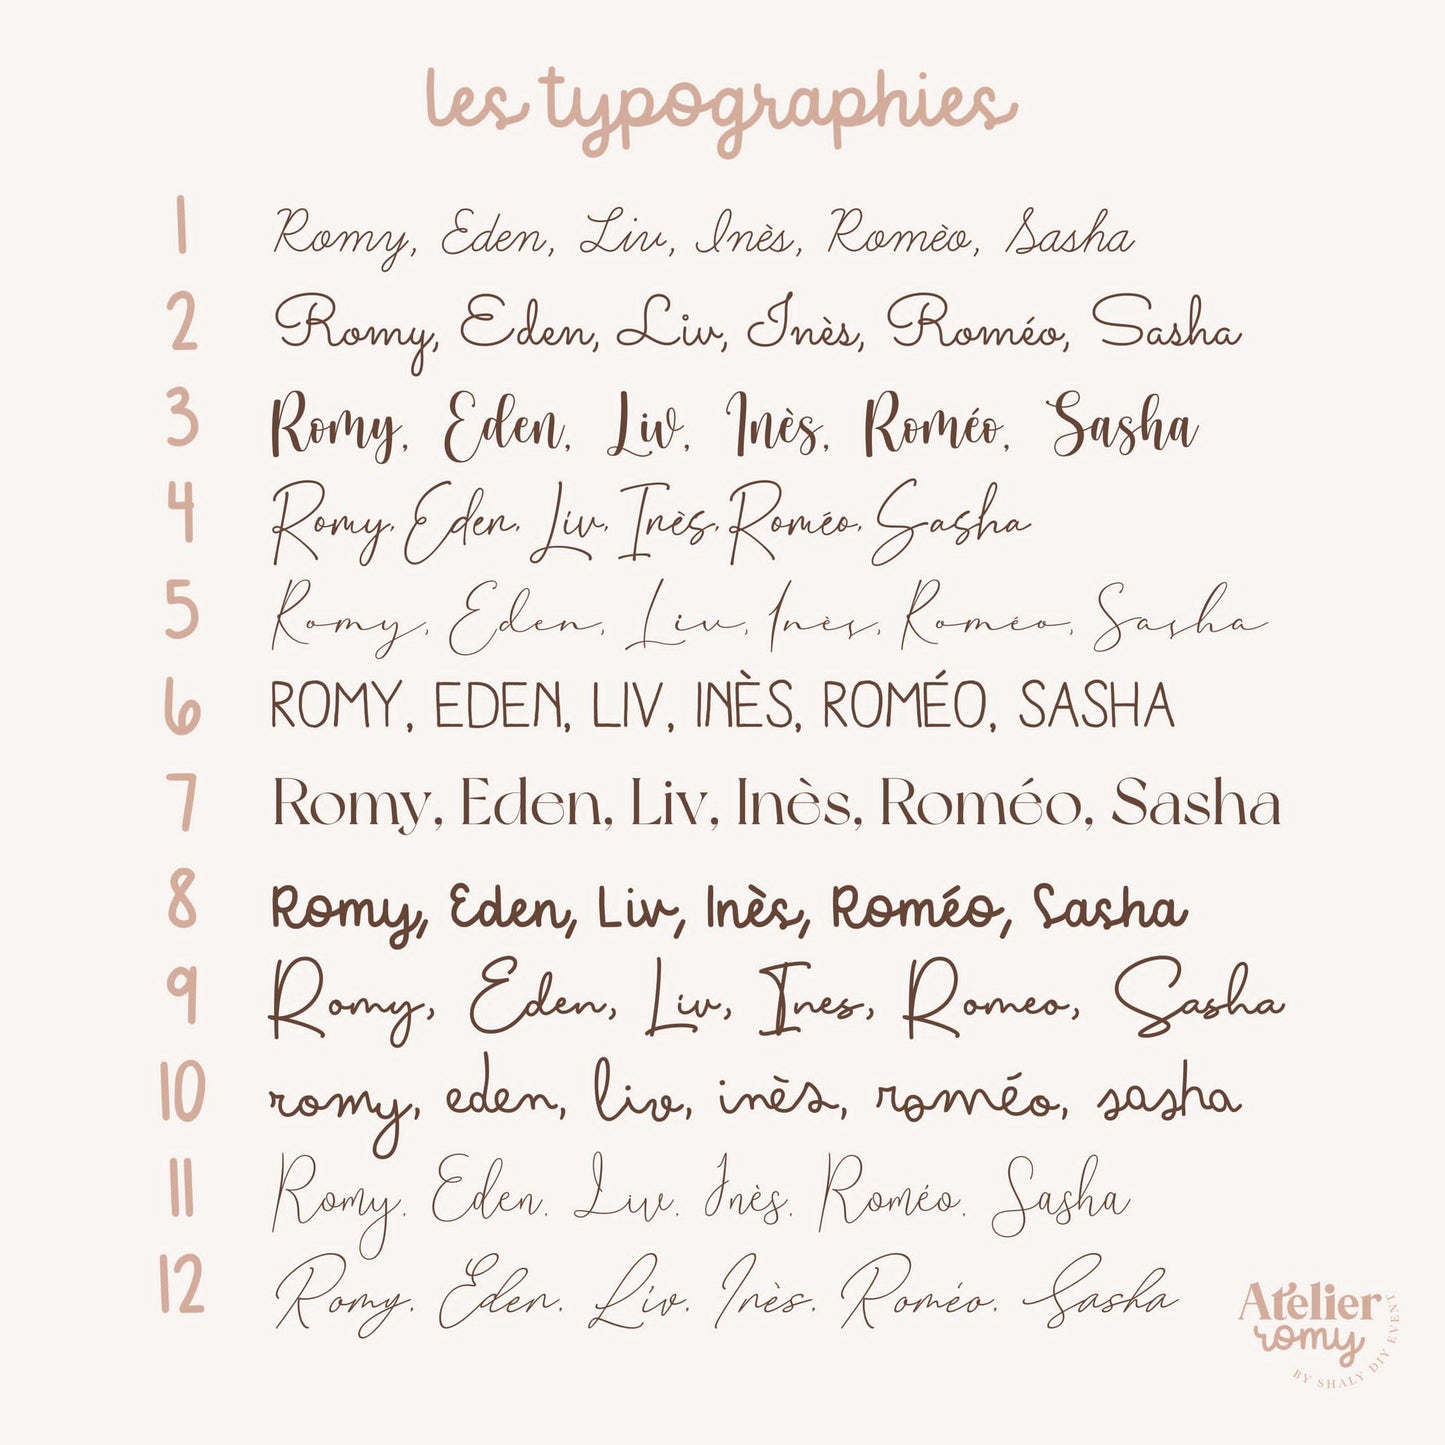 les typographies
1 Romy, Eden, Liv, Inès, Romèo, Sasha
2 Romy, Eden, Liv, Inès, Roméo, Sasha
3 Romy, Eden, Liv, Inès, Roméo, Sasha
4 Romy, Eden, Liv, Inès, Roméo, Sasha
5 Romy, Eden, Liv, Inès, Roméo, Sasha
6 ROMY, EDEN, LIV, INÈS, ROMÉO, SASHA
7 Romy, Eden, Liv, Inès, Roméo, Sasha
8 Romy, Eden, Liv, Inès, Roméo, Sasha
9 Romy, Eden, Liv, Ines, Romeo, Sasha
10 romy, eden, liv, inès, roméo, sasha
11 Romy, Eden, Liv, Inès, Roméo, Sasha
12 Romy, Eden, Liv, Inès, Roméo, Sasha
Atelier
romy
BY SHALY DIY EVENT